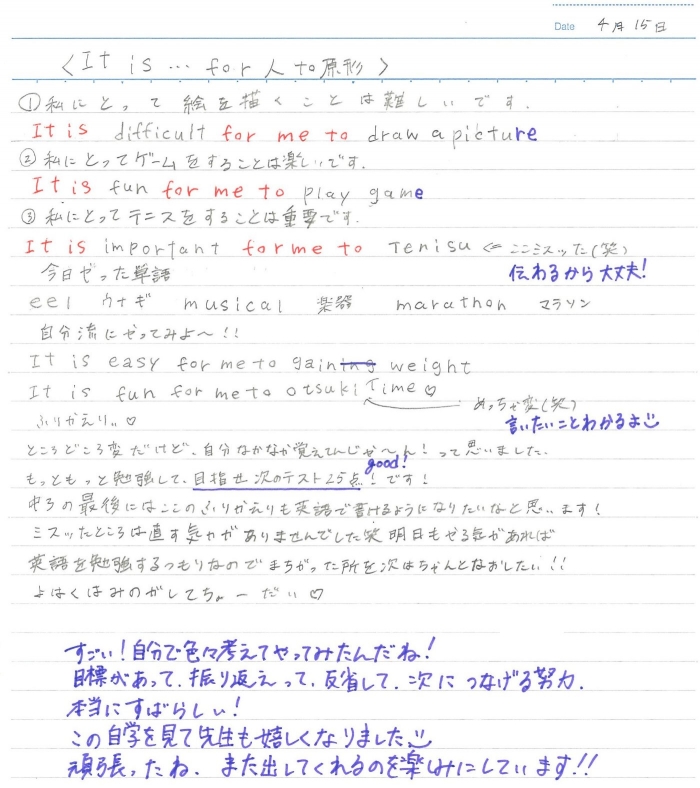 Date 4月 15日
〈It is … for 人 to 原形〉
①私にとって 絵を描くことは難しいです.
It is difficult for me to draw a picture
②私にとってゲームをすることは楽しいです.
It is fun for me to play game
③私にとってテニスをすることは重要です.
It is important for me to Tenisu ⇐ ここミスッた(笑)
今日やった単語
伝わるから大丈夫!
eel ウナギ musical 楽器 marathon マラソン
自分流にやってみよ〜!!
It is easy for me to gaining weight
It is fun for me to otsuki Time♡
めっちゃ変(笑)
ふりかえり..♡
言いたいことわかるよ☺
ところどころ変だけど、自分なかなか覚えてんじゃ〜ん!って思いました.
good!
もっともっと勉強して、目指せ次のテスト25点!です!
中3の最後にはここのふりかえりも英語で書けるようになりたいなと思います!
ミスッたところは直す気力がありませんでした笑 明日もやる気があれば
英語を勉強するつもりなのでまちがった所を次はちゃんとなおしたい!!
よはくはみのがしてちょーだい♡
すごい!自分で色々考えてやってみたんだね!
目標があって、振り返えって、反省して、次につなげる努力.
本当にすばらしい!
この自学を見て先生も嬉しくなりました☺
頑張ったね、また出してくれるのを楽しみにしています!!